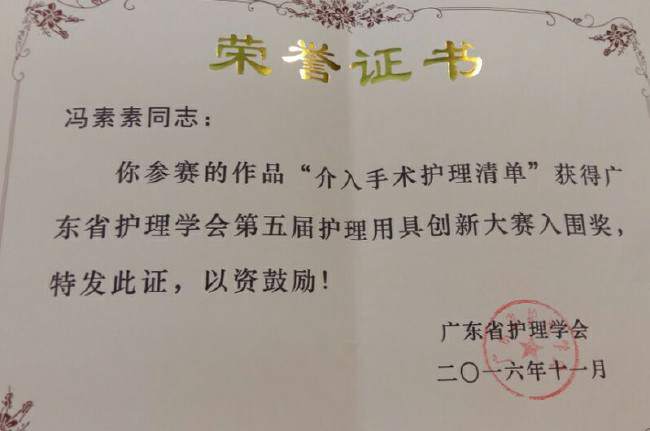 荣誉证书
冯素素同志：
你参赛的作品“介入手术护理清单”获得广
东省护理学会第五届护理用具创新大赛入围奖，
特发此证，以资鼓励！
广东省护理学会
二〇一六年十一月